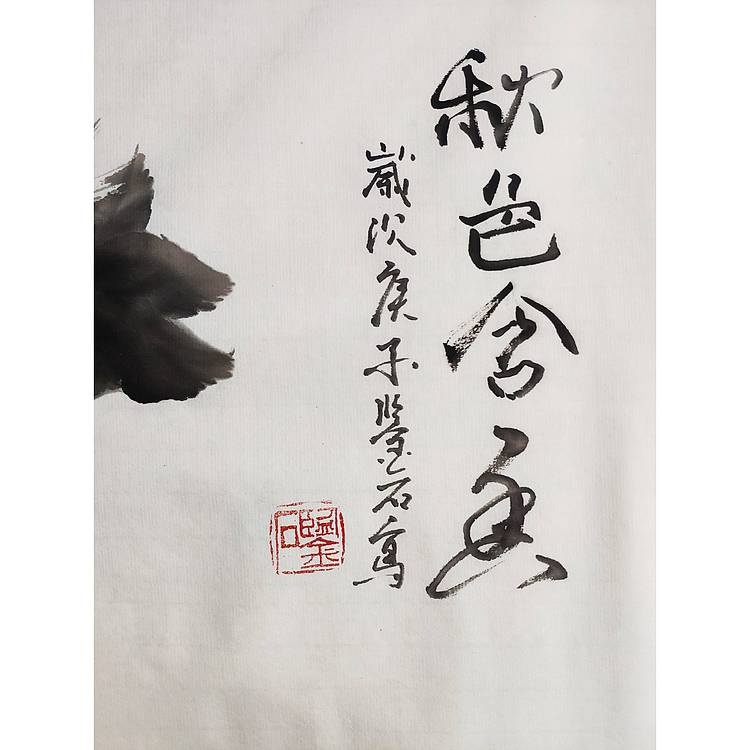 秋色含香
歲次庚子鑒石寫
鑒石